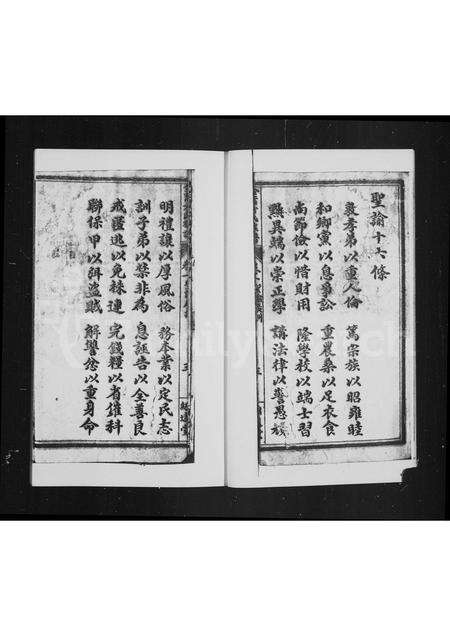 聖諭十六條
敦孝弟以重人倫　篤宗族以昭雍睦
和鄉黨以息爭訟　重農桑以足衣食
尚節儉以惜財用　隆學校以端士習
黜異端以崇正學　講法律以警愚
明禮讓以厚風俗　務本業以定民志
訓子弟以禁非為　息誣告以全善良
戒匿逃以免株連　完錢糧以省催科
聯保甲以弭盜賊　解讐忿以重身命